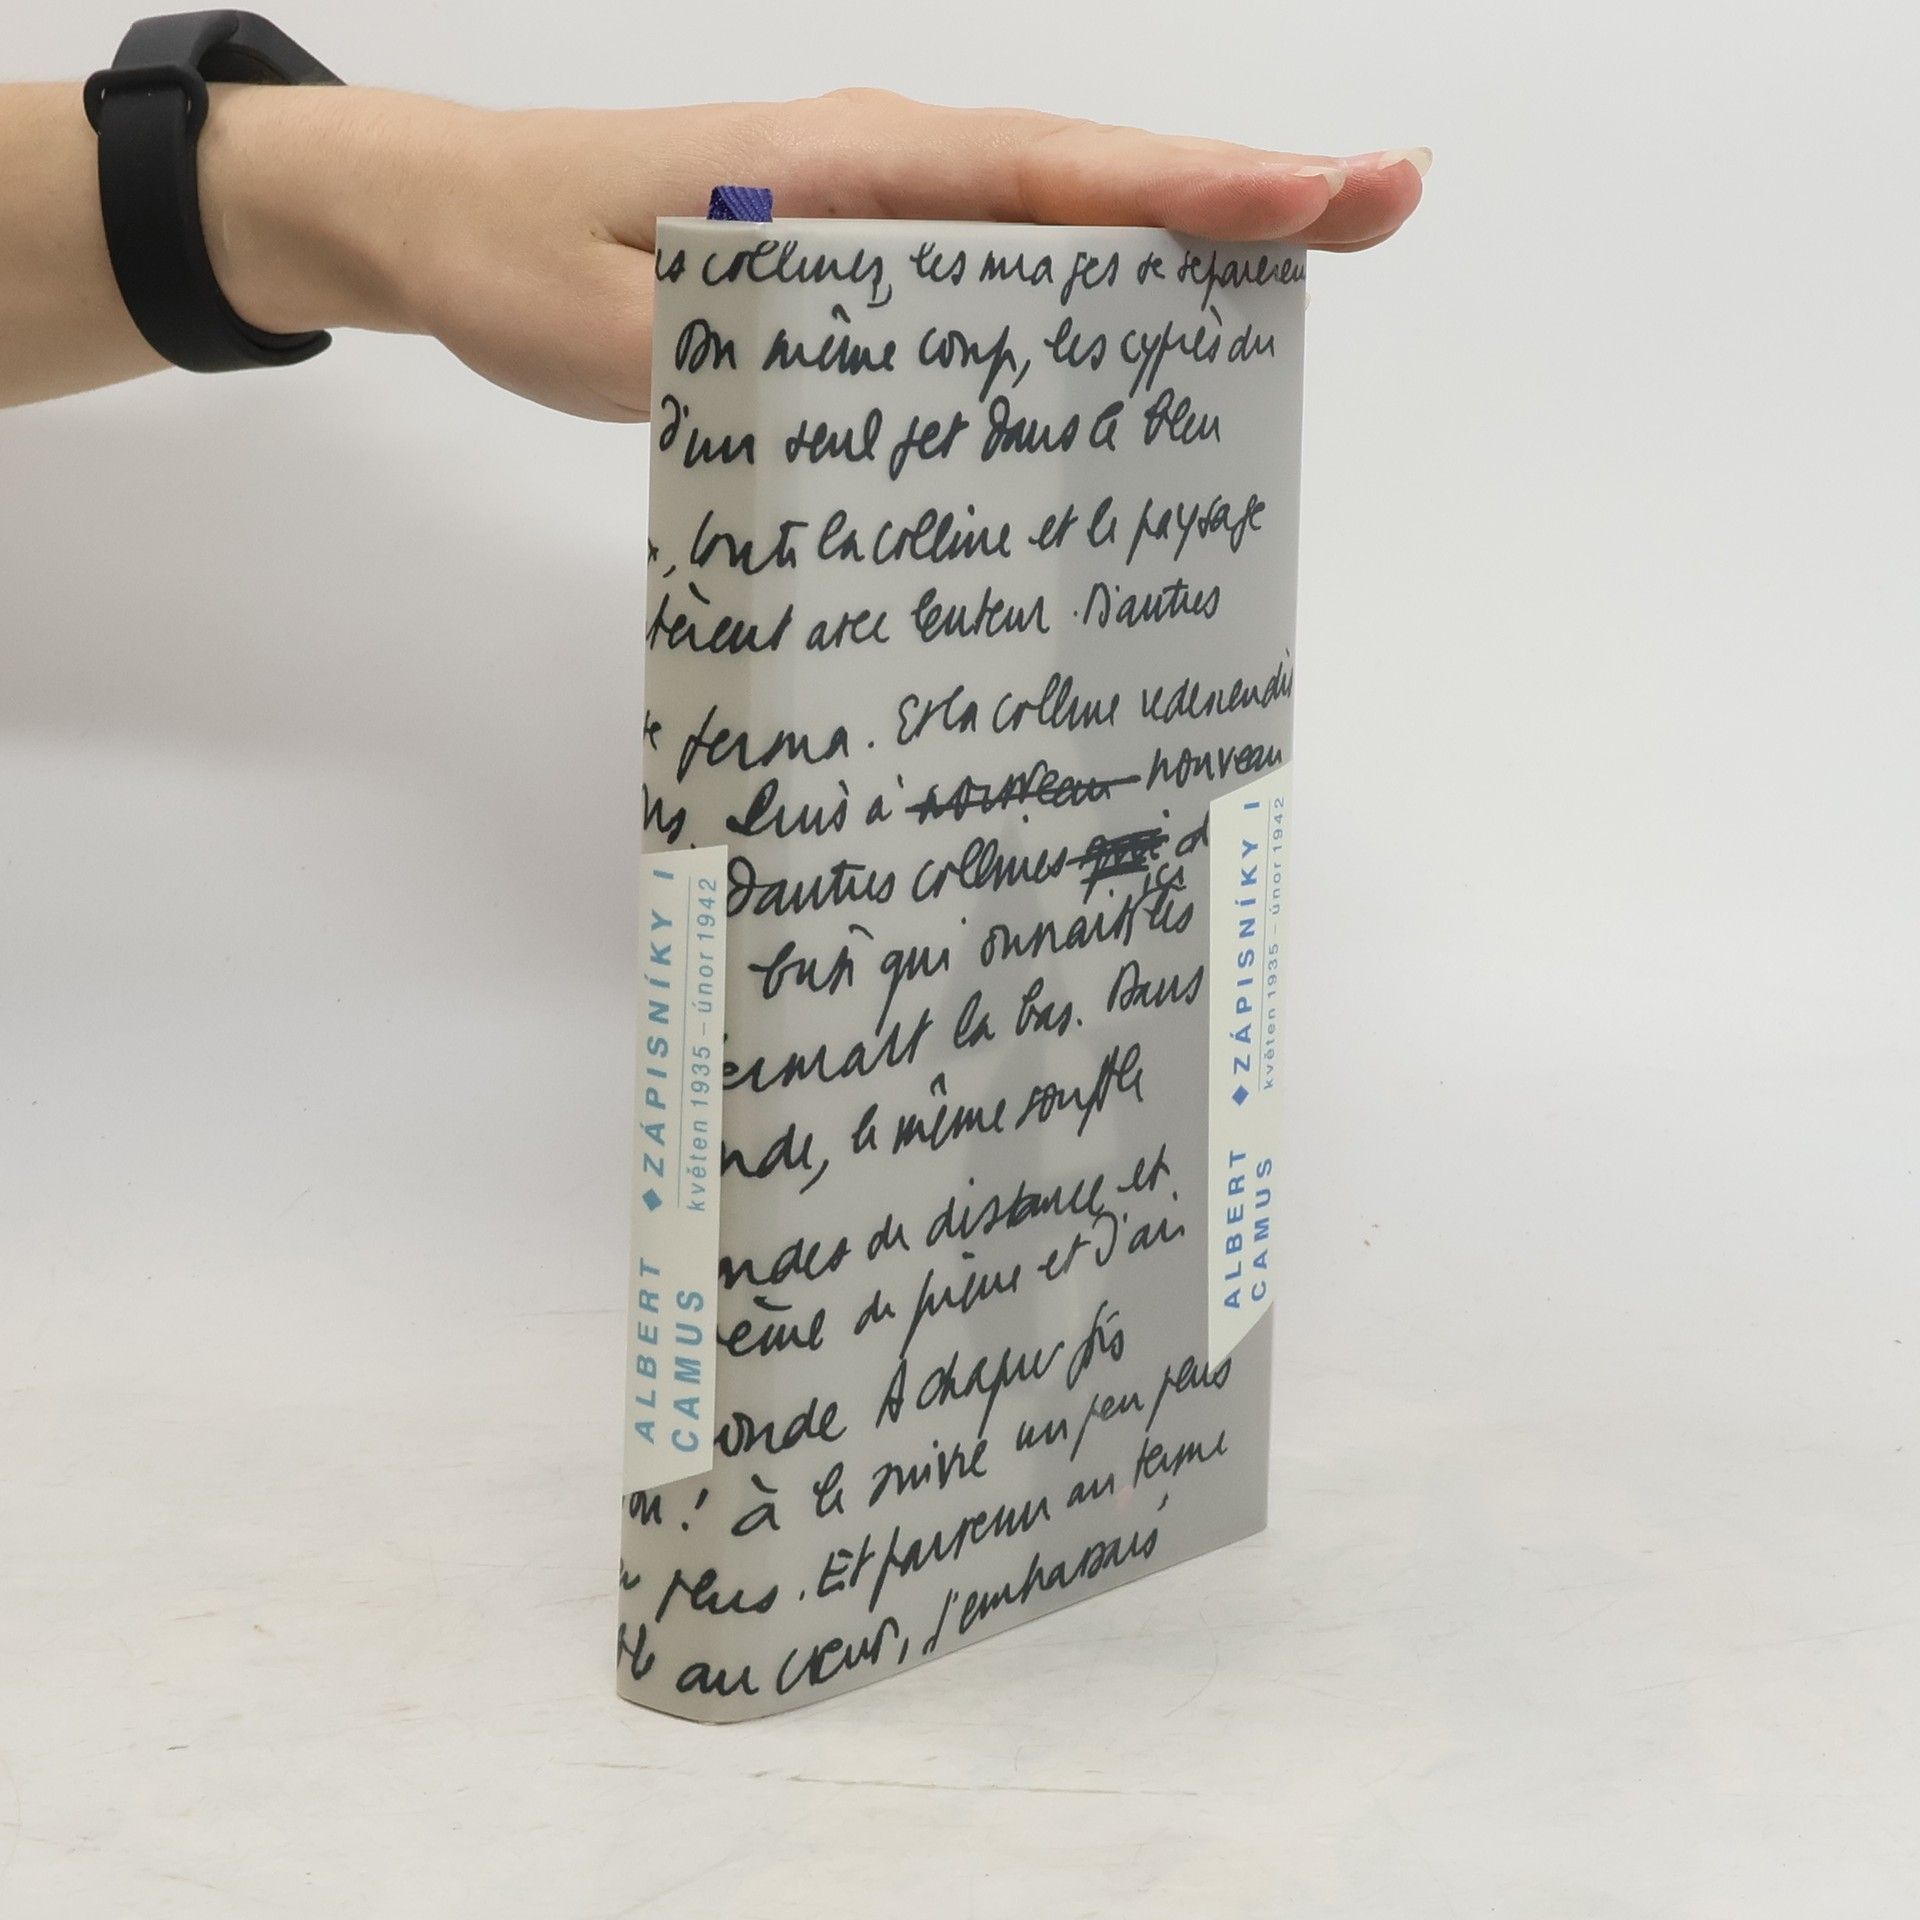 collines, les images se séparèren
Du même coup, les cyprès du
d'un seul jet dans le bleu
, toute la colline et le paysage
tèrent avec lenteur. D'autres
ferma. Et la colline redescendit
Puis à nouveau nouveau
d'autres collines qui
ici
qui les
là bas. Dans
nde, le même souffle
ndes de distance et
ème de et d'ai
onde A chaque fois
on! à le suivre un peu plus
plus. Et parvenu au terme
au cœur, j'embrassais
ALBERT
CAMUS
◆ZÁPISNÍKY I
květen 1935 – únor 1942
ALBERT
CAMUS
◆ZÁPISNÍKY I
květen 1935 – únor 1942